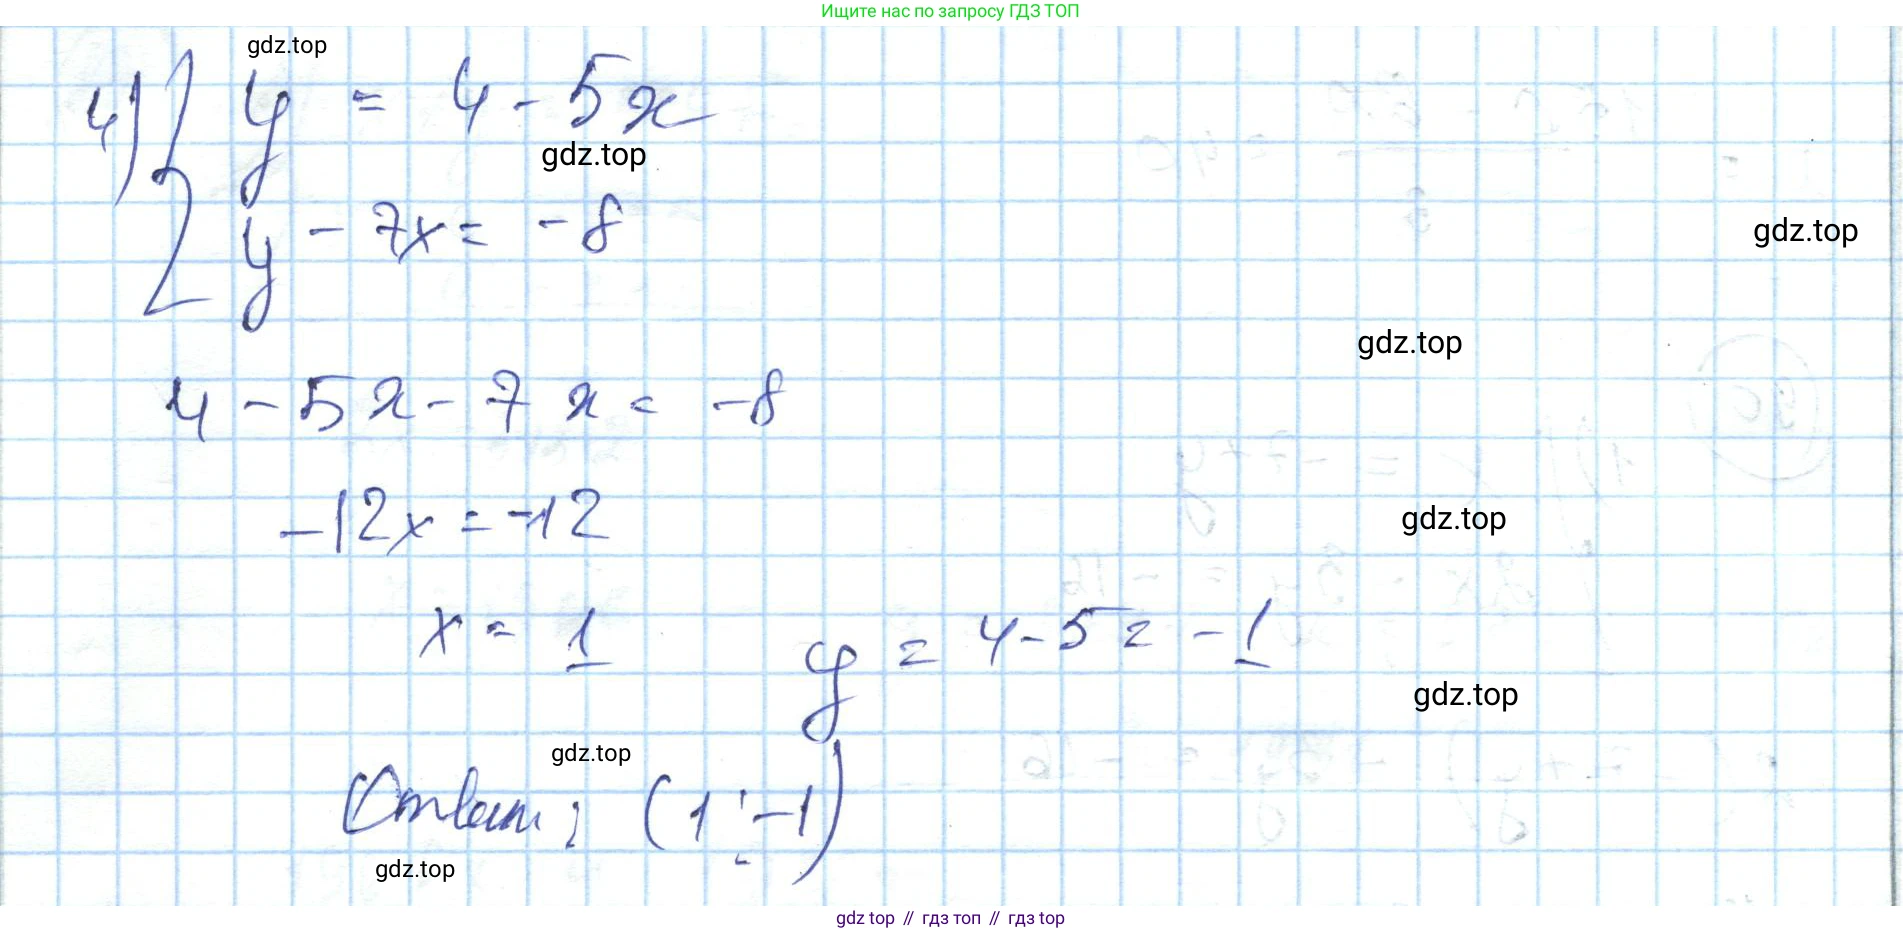 Ищите нас по запросу ГДЗ ТОП
gdz.top
4) { y = 4 - 5x
gdz.top
y - 7x = -8
gdz.top
gdz.top
4 - 5x - 7x = -8
-12x = -12
gdz.top
x = 1 y = 4 - 5 = -1
gdz.top
gdz.top
Ответ: (1; -1)
gdz.top
gdz top // гдз топ // гдз top